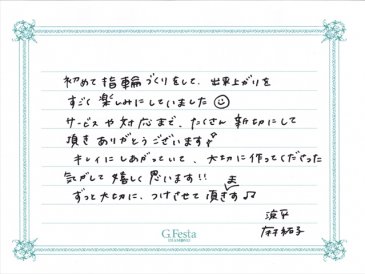 初めて指輪づくりをして、出来上がりを
すごく楽しみにしていました☺
サービスや対応まで、たくさん親切にして
頂きありがとうございます♪
キレイにしあがっていて、大切に作ってくださった
気がして嬉しく思います!!
ずっと大切に、つけさせて頂きます♫
G.Festa